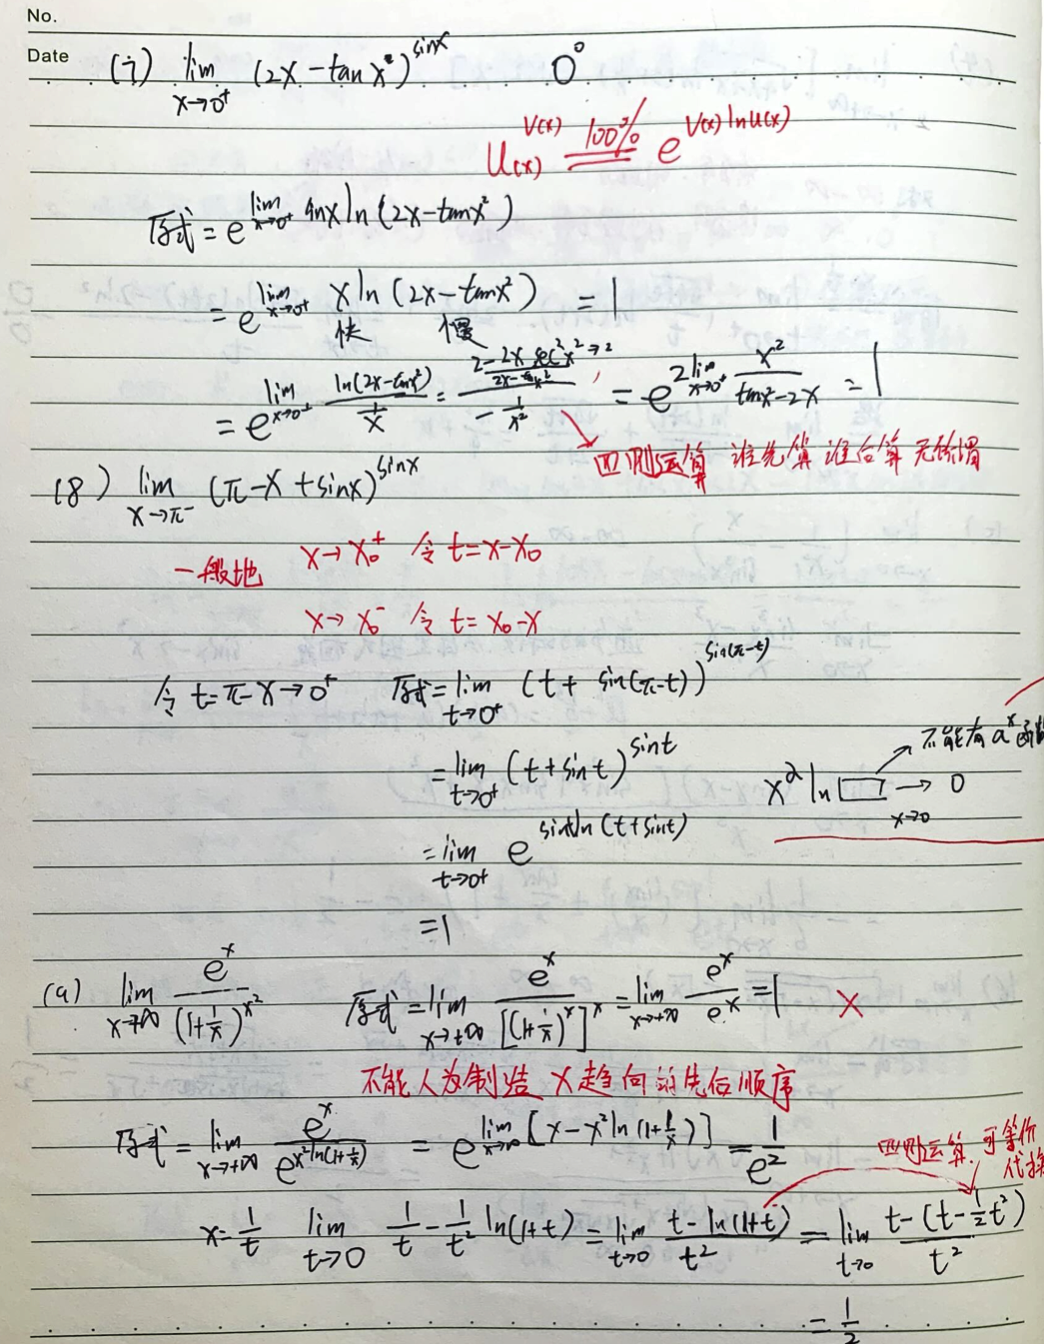 No.
Date
(7) lim x→0⁺ (2x - tan x²)^sinx 0⁰
U(x)^V(x) 100% e^V(x)lnu(x)
原式 = e^lim x→0⁺ sinx ln(2x-tanx²)
= e^lim x→0⁺ x ln(2x-tanx²) = 1
快 慢
= e^lim x→0⁺ ln(2x-tanx²)/(1/x) = ((2-2x sec²x²→2)/(2x-tanx²))/(-1/x²) = e^2lim x→0⁺ x²/(tanx²-2x) = 1
四则运算 谁先算谁后算无所谓
(8) lim x→π⁻ (π-x+sinx)^sinx
一般地 x→x₀⁺ 令 t=x-x₀
x→x₀⁻ 令 t=x₀-x
令 t=π-x→0⁺ 原式=lim t→0⁺ (t+sin(π-t))^sin(π-t)
不能有 a^x 函数
= lim t→0⁺ (t+sint)^sint
x^α ln □ → 0 x→0
= lim t→0⁺ e^sintln(t+sint)
= 1
(9) lim x→+∞ e^x/(1+1/x)^x² 原式=lim x→+∞ e^x/[(1+1/x)^x]^x = lim x→+∞ e^x/e^x = 1 ×
不能人为制造 x趋向的先后顺序
原式=lim x→+∞ e^x/e^x²ln(1+1/x) = e^lim x→∞ [x-x²ln(1+1/x)] = 1/e²
四则运算, 可等价代换
x=1/t lim t→0 1/t - 1/t² ln(1+t) = lim t→0 (t-ln(1+t))/t² = lim t→0 (t-(t-½t²))/t²
= 1/2